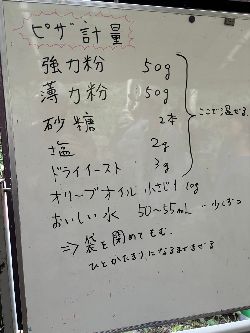 ピザ計量
強力粉 50g
薄力粉 50g
砂糖 2本
塩 2g
ドライイースト 3g
ここで混ぜる
オリーブオイル 小さじ1 10g
おいしい水 50〜55mL 少しずつ
⇒ 袋を閉めてもむ。
ひとかたまりになるまでまぜる